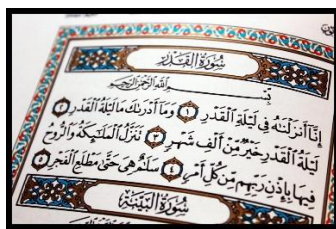 سُورَةُ الْقَدْرِ
بِسْمِ اللَّهِ الرَّحْمَٰنِ الرَّحِيمِ
إِنَّا أَنزَلْنَٰهُ فِى لَيْلَةِ ٱلْقَدْرِ ١ وَمَآ أَدْرَىٰكَ مَا لَيْلَةُ ٱلْقَدْرِ ٢
لَيْلَةُ ٱلْقَدْرِ خَيْرٌ مِّنْ أَلْفِ شَهْرٍ ٣ تَنَزَّلُ ٱلْمَلَٰٓئِكَةُ وَٱلرُّوحُ
فِيهَا بِإِذْنِ رَبِّهِم مِّن كُلِّ أَمْرٍ ٤ سَلَٰمٌ هِىَ حَتَّىٰ مَطْلَعِ ٱلْفَجْرِ ٥
سُورَةُ الْبَيِّنَةِ